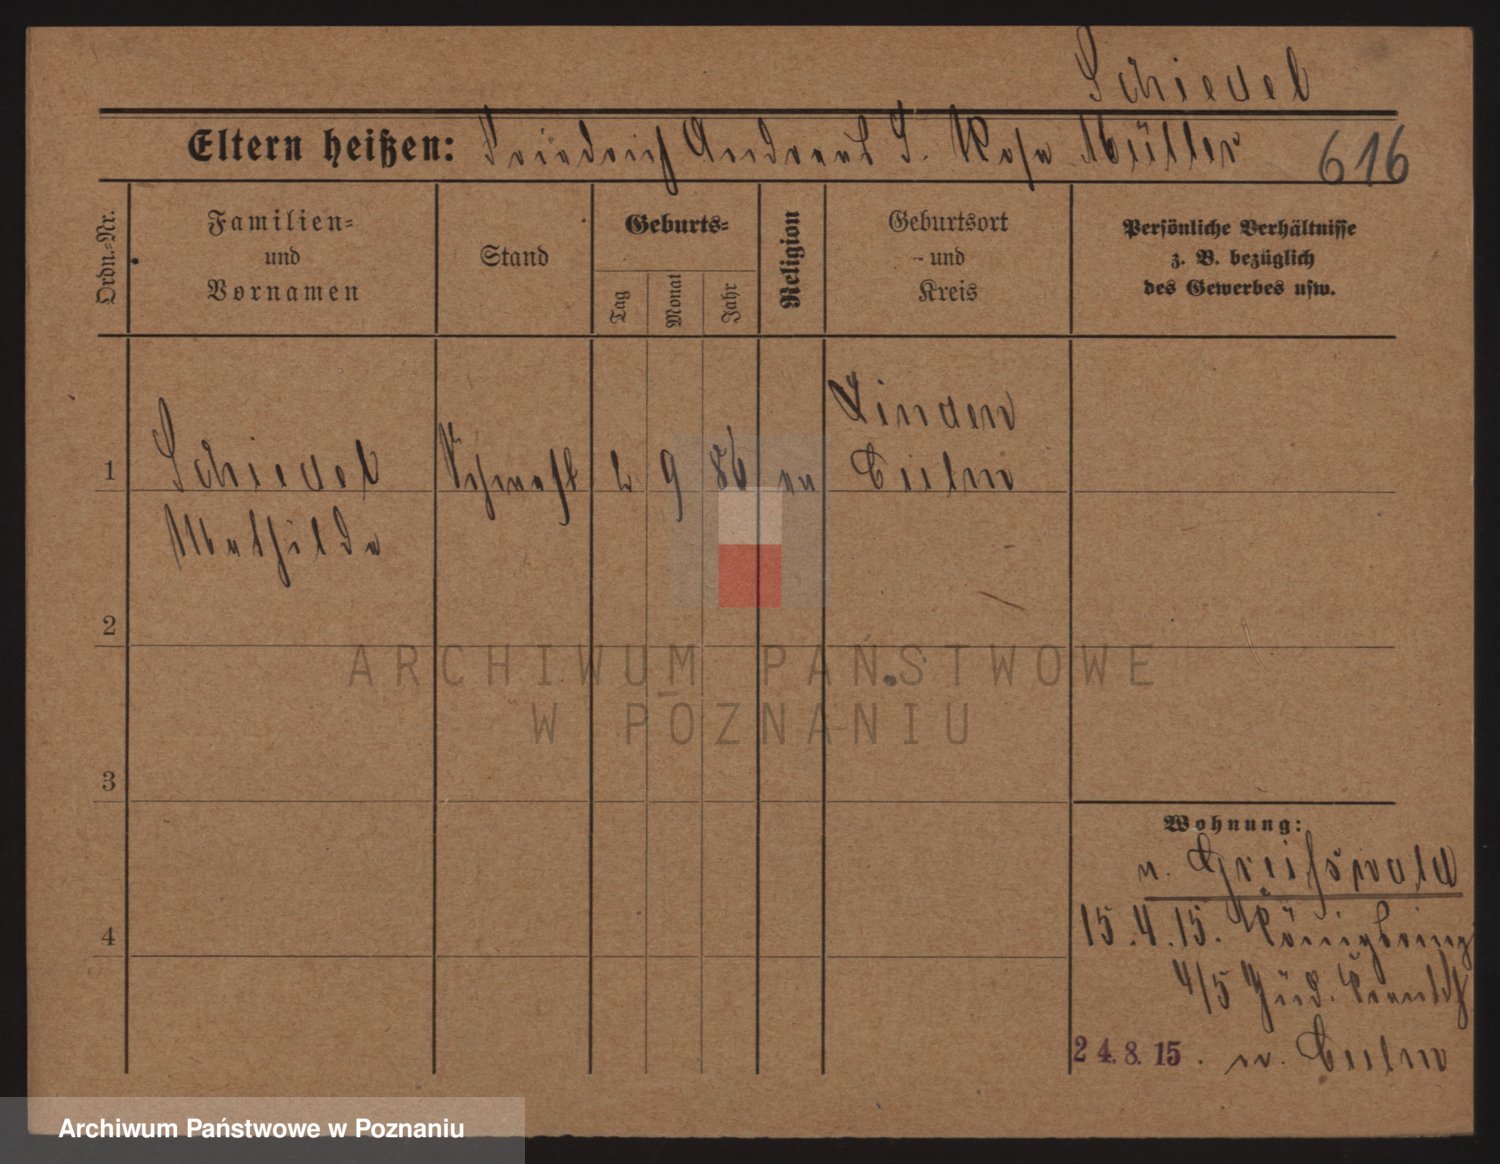 Schiedel
Eltern heißen: Friedrich Andreas S. Rosa Müller 616
Ordn.-Nr.
Familien-
und
Vornamen
Stand
Geburts-
Tag
Monat
Jahr
Religion
Geburtsort
- und
Kreis
Persönliche Verhältnisse
z. B. bezüglich
des Gewerbes usw.
Linden
1 Schiedel 9 86 ev Culm
Mathilde
2
ARCHIWUM PAŃSTWOWE
W POZNANIU
3
Wohnung:
v. Greifswald
15.4.15. Königsring
4/5 Jüd. Krankh
4
24.8.15. n. Culm
Archiwum Państwowe w Poznaniu